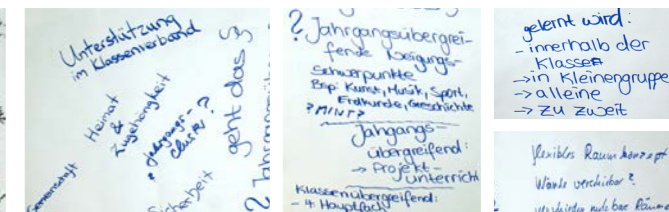 Unterstützung
im Klassenverband
Heimat
&
Zugehörigkeit
Jahrgangs-
cluster?
geht das §
Gemeinschaft
Sicherheit
? Jahrgangsübergrei-
fende Neigungs-
schwerpunkte
Bsp: Kunst, Musik, Sport,
Erdkunde, Geschichte
? MINT?
Jahgangs-
übergreifend:
→ Projekt-
unterricht
Klassenübergreifend:
- 4. Hauptfach
gelernt wird:
- innerhalb der
Klassen
→ in Kleinengruppe
→ alleine
→ zu zweit
flexibles Raumkonzept
Wände verschiebbar?